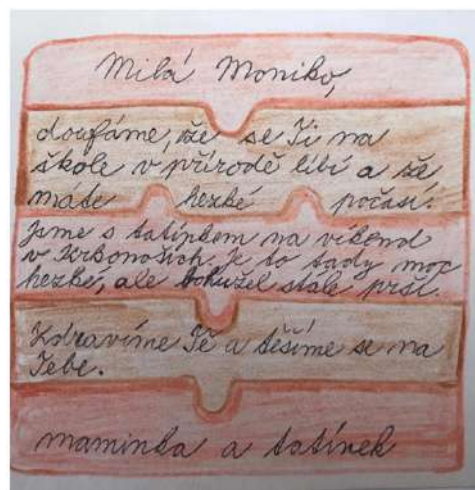 Milá Moniko,
doufáme, že se Ti na
škole v přírodě líbí a že
máte hezké počasí.
Jsme s tatínkem na víkend
v Krkonoších. Je to tady moc
hezké, ale bohužel stále prší.
Zdravíme Tě a těšíme se na
Tebe.
maminka a tatínek